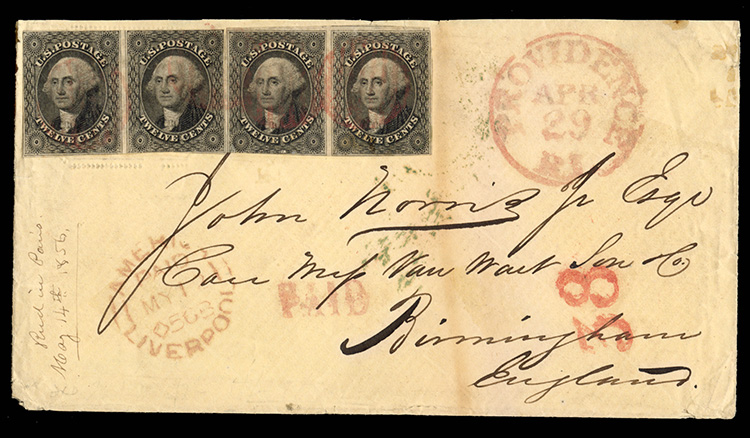 U.S. POSTAGE U.S. POSTAGE U.S. POSTAGE U.S. POSTAGE
TWELVE CENTS TWELVE CENTS TWELVE CENTS TWELVE CENTS
PROVIDENCE
APR
29
R.I.
John Norris Jr Esqr
Care Van Wart Son & Co.
Birmingham
England.
AMERIC
PAID
MY
LIVERPOOL
PAID
38
Recd in Paris.
May 14th 1856.